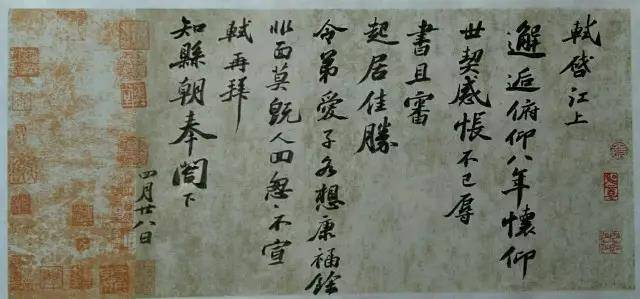 軾啓江上
邂逅俯仰八年懷仰
世契感悵不已辱
書且審
起居佳勝
令弟愛子各想康福餘
非面莫既人回怱〻不宣
軾再拜
知縣朝奉閤下
四月廿八日